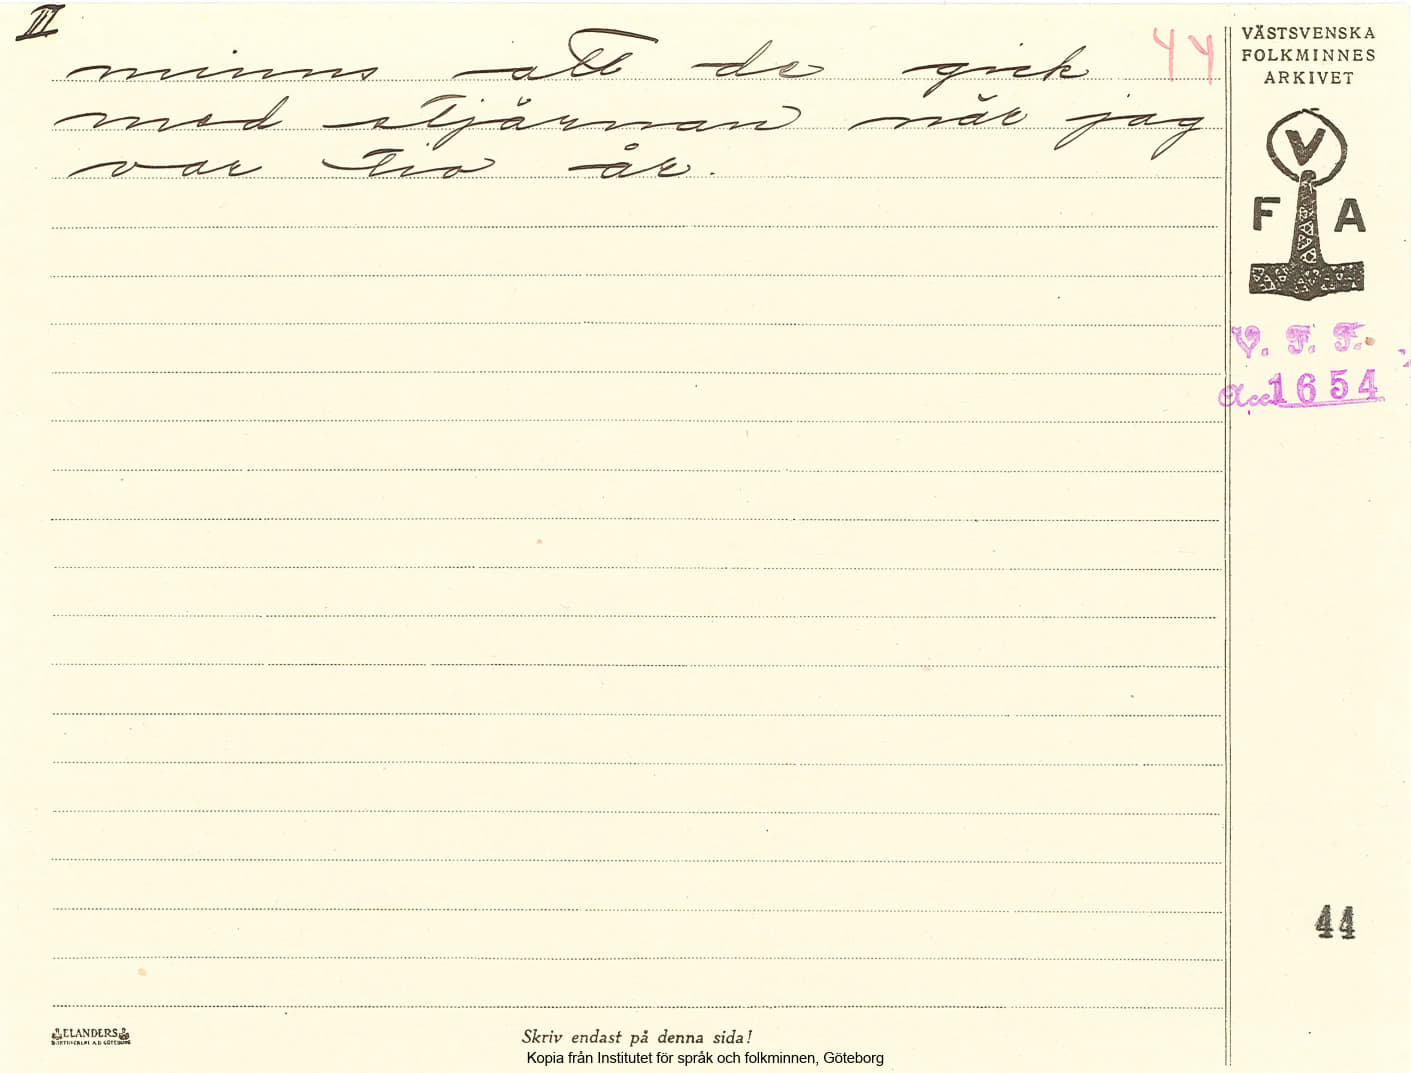 II
minns att de gick
med stjärnan när jag
var tio år.
44
VÄSTSVENSKA
FOLKMINNES
ARKIVET
V
F A
V. F. F.
Acc. 1654
44
ELANDERS
Skriv endast på denna sida!
Kopia från Institutet för språk och folkminnen, Göteborg